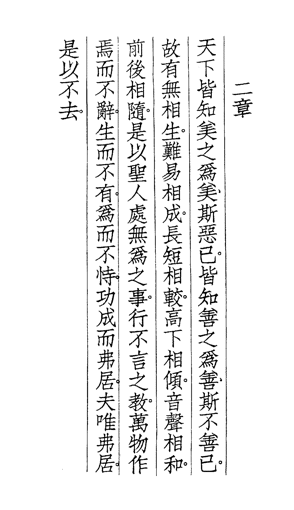 二章
天下皆知美之爲美、斯惡已。皆知善之爲善、斯不善已。
故有無相生。難易相成。長短相較。高下相傾。音聲相和。
前後相隨。是以聖人處無爲之事。行不言之教。萬物作
焉而不辭。生而不有。爲而不恃。功成而弗居。夫唯弗居。
是以不去。